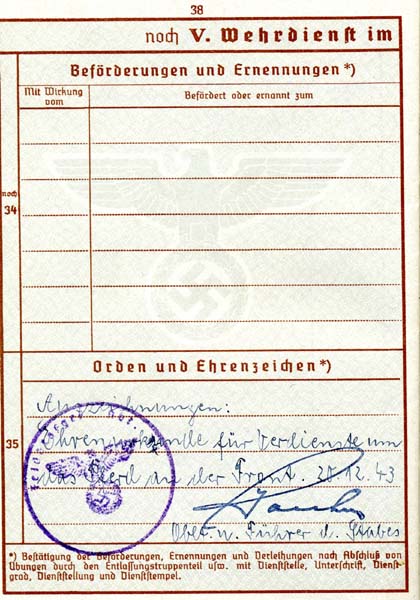 38
noch V. Wehrdienst im
Beförderungen und Ernennungen*)
Mit Wirkung vom
Befördert oder ernannt zum
noch 34
Orden und Ehrenzeichen*)
35
Auszeichnungen:
Ehrenurkunde für Verdienste um
das Pferd an der Front. 20.12.43
Oblt. u. Führer d. Stabes
*) Bestätigung der Beförderungen, Ernennungen und Verleihungen nach Abschluß von
Übungen durch den Entlassungstruppenteil usw. mit Dienststelle, Unterschrift, Dienst-
grad, Dienststellung und Dienststempel.